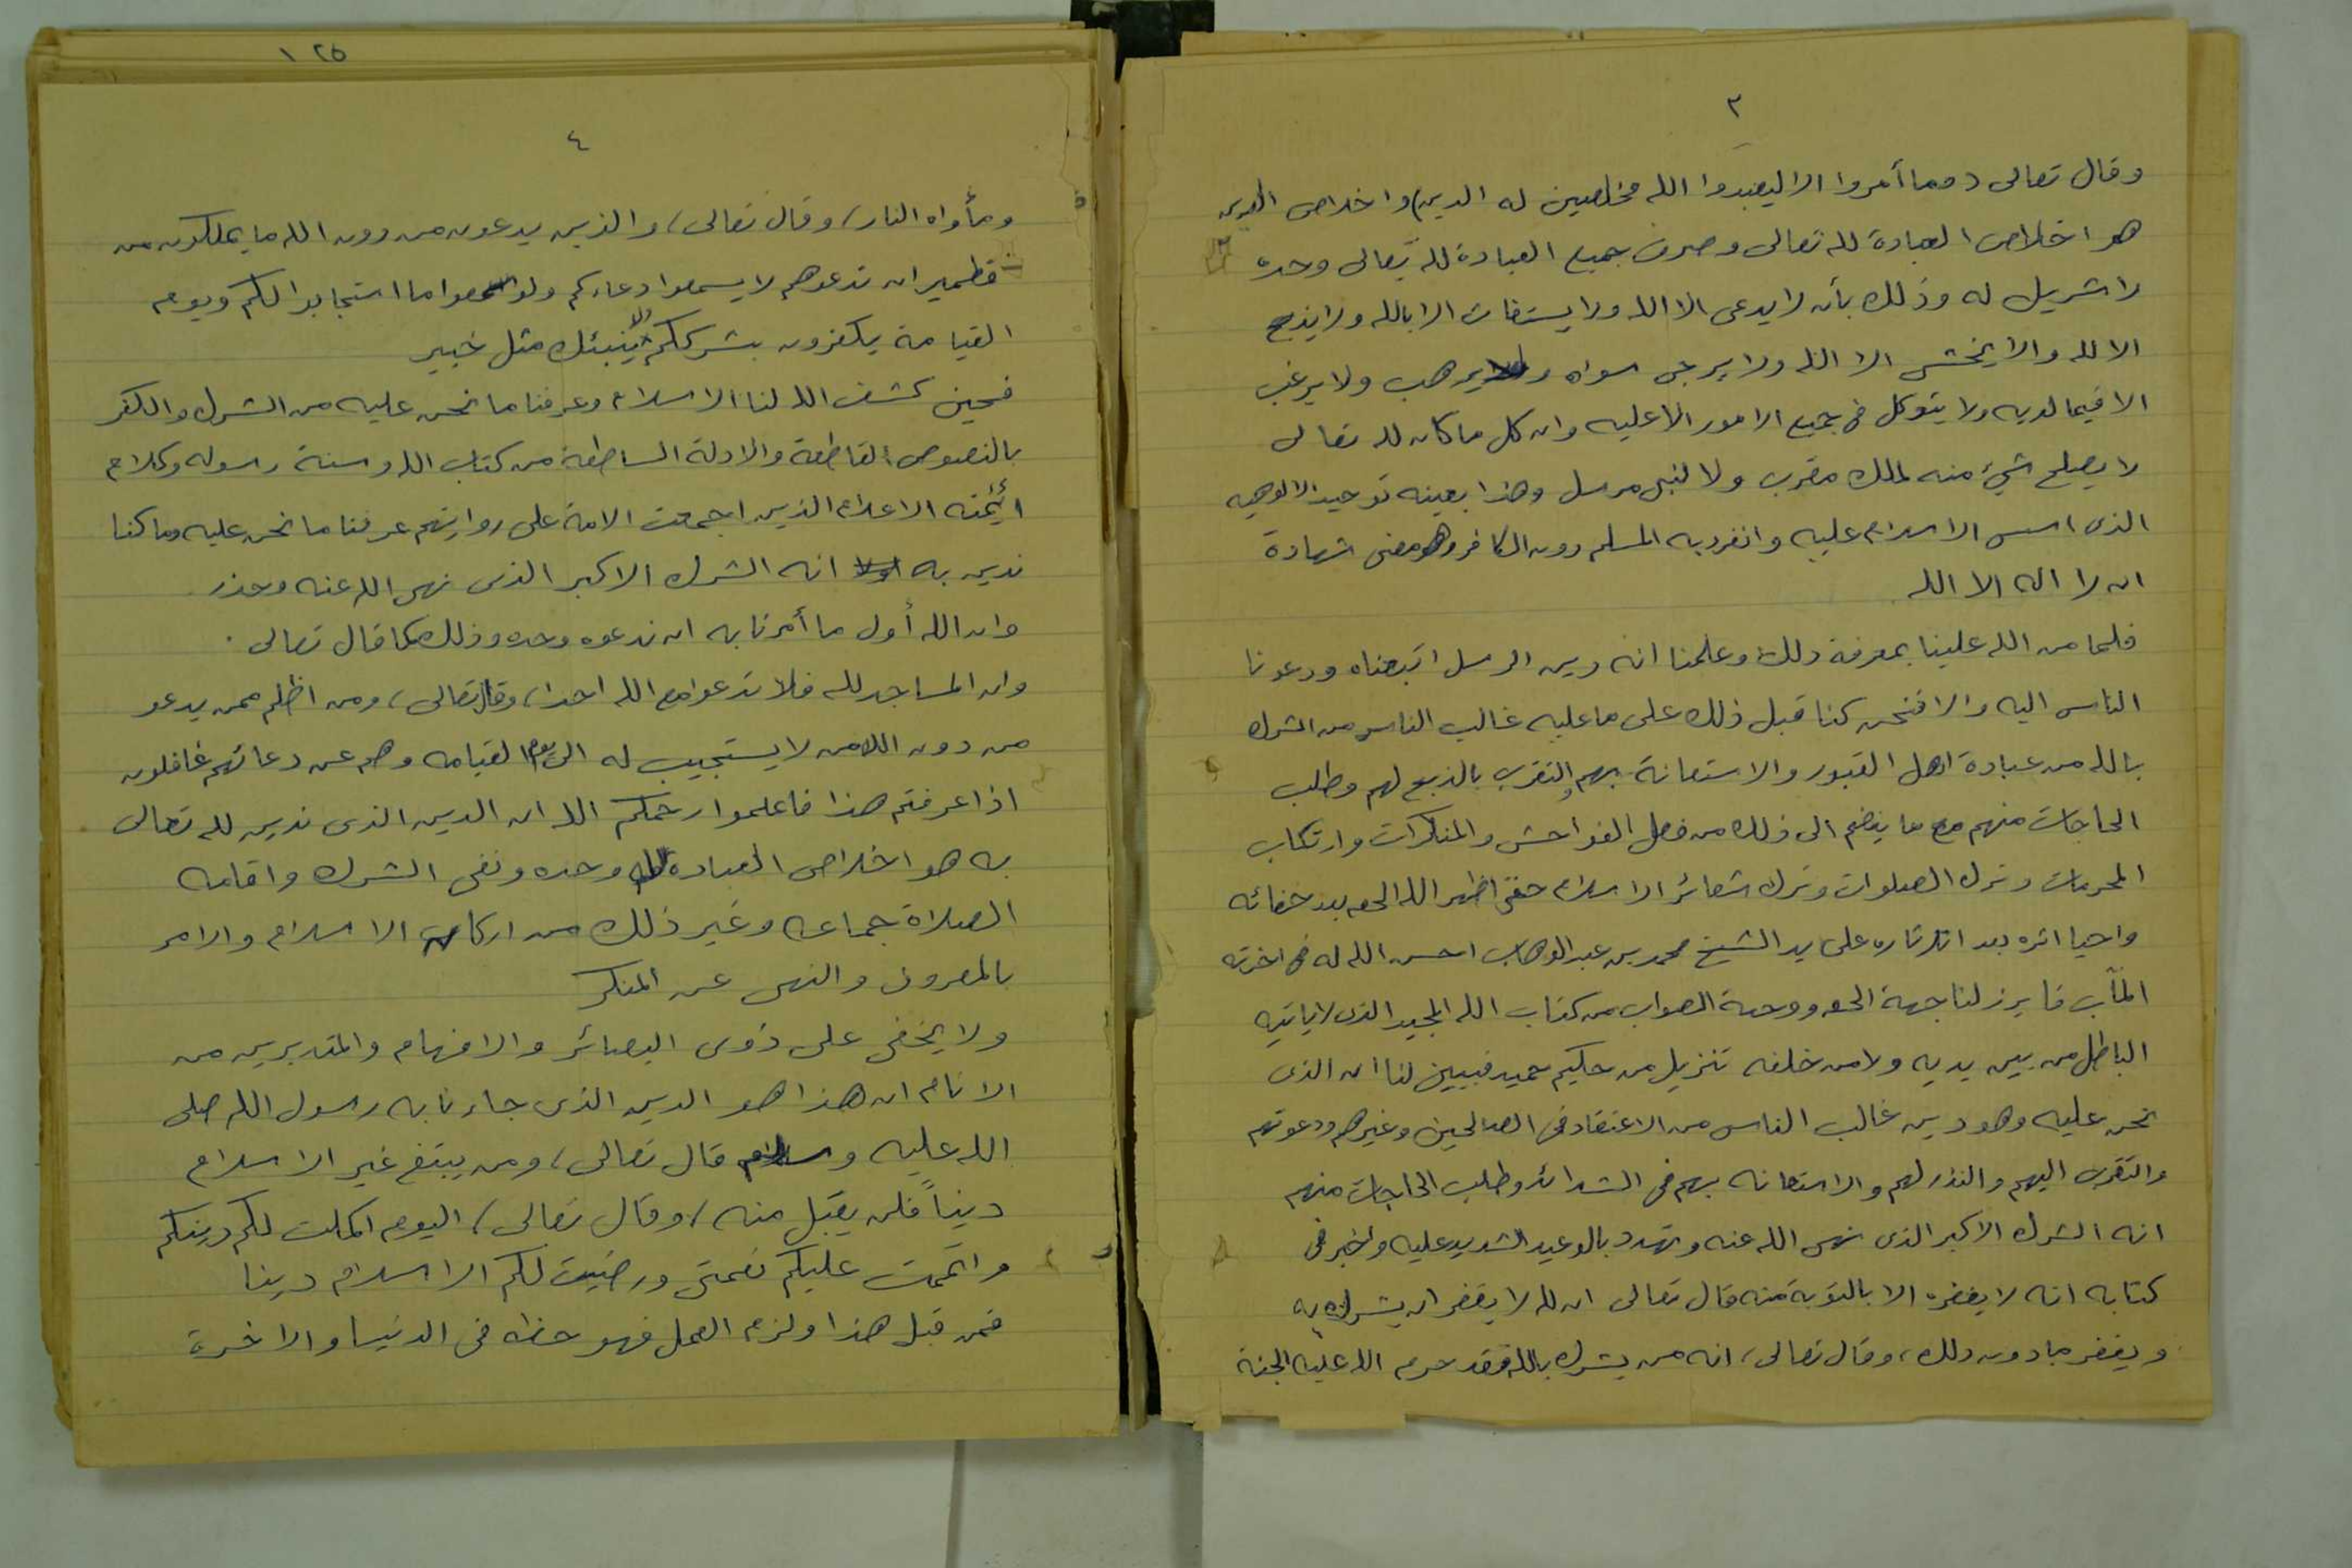 ٣
وقال تعالى (وما أمروا الا ليعبدوا الله مخلصين له الدين) واخلاص الدين
هو اخلاص العبادة لله تعالى وصرف جميع العبادة لله تعالى وحده
لا شريك له وذلك بأن لا يدعى الا الله ولا يستغاث الا بالله ولا يذبح
الا لله ولا يخشى الا الله ولا يرجى سواه ولا يرهب ولا يرغب
الا فيما لديه ولا يتوكل في جميع الامور الا عليه وان كل ما كان لله تعالى
لا يصلح شيء منه لملك مقرب ولا لنبي مرسل وهذا بعينه توحيد الالوهيه
الذى اسس الاسلام عليه وانفرد به المسلم دون الكافر وهو معنى شهادة
ان لا اله الا الله
فلما من الله علينا بمعرفة ذلك وعلمنا انه دين الرسل اتبعناه ودعونا
الناس اليه والا فنحن كنا قبل ذلك على ما عليه غالب الناس من الشرك
بالله من عبادة اهل القبور والاستعانة بهم والتقرب بالذبح لهم وطلب
الحاجات منهم مع ما ينضم الى ذلك من فعل الفواحش والمنكرات وارتكاب
المحرمات وترك الصلوات وترك شعائر الاسلام حتى اظهر الله الحق بعد خفائه
واحيا اثره بعد اندثاره على يد الشيخ محمد بن عبد الوهاب احسن الله له في اخرته
المآب فابرز لنا جهة الحق ووجهة الصواب من كتاب الله المجيد الذى لا ياتيه
الباطل من بين يديه ولا من خلفه تنزيل من حكيم حميد فبيين لنا ان الذى
نحن عليه وهو دين غالب الناس من الاعتقاد في الصالحين وغيرهم ودعوتهم
والتقرب اليهم والنذر لهم والاستعانه بهم في الشدائد وطلب الحاجات منهم
انه الشرك الاكبر الذى نهى الله عنه وتهدد بالوعيد الشديد عليه واخبر في
كتابه انه لا يغفره الا بالتوبة منه قال تعالى ان الله لا يغفر ان يشرك به
ويغفر ما دون ذلك، وقال تعالى، انه من يشرك بالله فقد حرم الله عليه الجنة
١٢٥
٤
ومأواه النار، وقال تعالى، والذين يدعون من دون الله ما يملكون من
قطمير ان تدعوهم لا يسمعوا دعاءكم ولو سمعوا ما استجابوا لكم ويوم
القيامة يكفرون بشرككم ولا ينبئك مثل خبير
فحين كشف الله لنا الاسلام وعرفنا ما نحن عليه من الشرك والكفر
بالنصوص القاطعة والادلة الساطعة من كتاب الله وسنة رسوله وكلام
ائمته الاعلام الذين اجمعت الامة على روايتهم عرفنا ما نحن عليه وما كنا
ندين به اولا انه الشرك الاكبر الذى نهى الله عنه وحذر
وان الله أول ما أمرنا به ان ندعوه وحده وذلك كما قال تعالى.
وان المساجد لله فلا تدعوا مع الله احدا، وقال تعالى، ومن اظلم ممن يدعو
من دون الله من لا يستجيب له الى يوم القيامه وهم عن دعائهم غافلون
اذا عرفتم هذا فاعلموا رحمكم الله ان الدين الذى ندين لله تعالى
به هو اخلاص العباده لله وحده ونفى الشرك واقامه
الصلاة جماعه وغير ذلك من اركان الاسلام والامر
بالمعروف والنهى عن المنكر
ولا يخفى على ذوى البصائر والافهام والمتدبرين من
الانام ان هذا هو الدين الذى جاءنا به رسول الله صلى
الله عليه وسلم قال تعالى، ومن يبتغ غير الاسلام
ديناً فلن يقبل منه، وقال تعالى، اليوم اكملت لكم دينكم
واتممت عليكم نعمتى ورضيت لكم الاسلام دينا
فمن قبل هذا ولزم العمل فهو حظه في الدنيا والاخرة